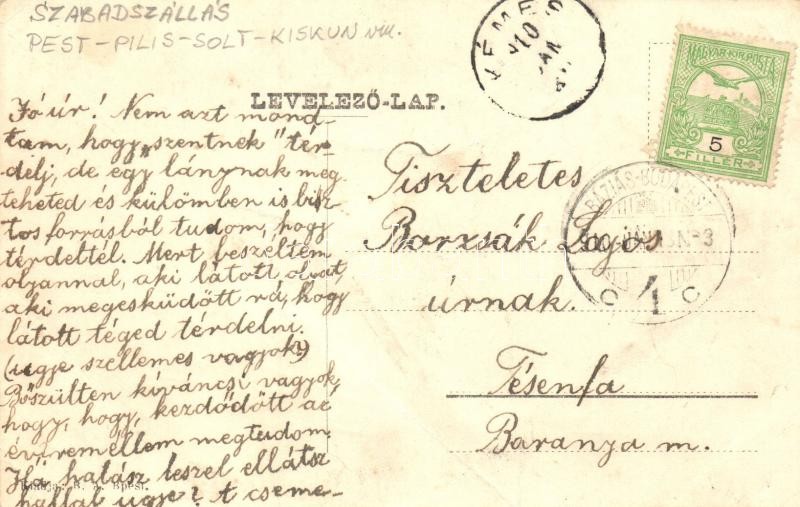 SZABADSZÁLLÁS
PEST-PILIS-SOLT-KISKUN vm.
NEMES
910
JAN
MAGYAR KIR. POSTA
5
FILLÉR
BÁZIÁS-BUDAPEST
LEVELEZŐ-LAP.
Jó úr! Nem azt mond-
tam, hogy „szentnek" tér-
delj, de egy lánynak meg
teheted és külömben is biz-
tos forrásból tudom, hogy
térdettél. Mert beszéltem
olyannal, aki látott olyat,
aki megesküdött rá, hogy
látott téged térdelni.
(ugje szellemes vagyok?)
Bőszülten kiváncsi vagyok,
hogy, hogy, kezdődött az
év, remélem megtudom.
Ha halász leszel ellátsz
hallal ugje? A cseme-
Tiszteletes
Borzsák Lajos
úrnak.
Tésenfa
Baranya m.